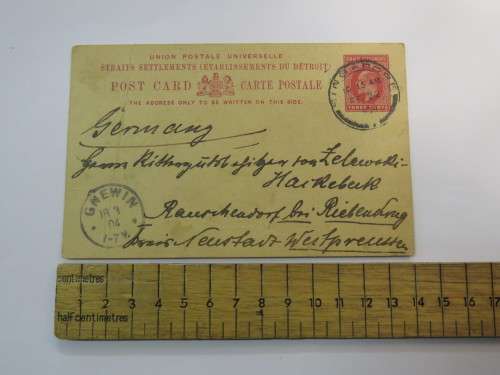 UNION POSTALE UNIVERSELLE
STRAITS SETTLEMENTS (ETABLISSEMENTS DU DÉTROIT)
POST CARD CARTE POSTALE
THE ADDRESS ONLY TO BE WRITTEN ON THIS SIDE.
THREE CENTS
SINGAPORE
Germany
Herrn Rittergutsbesitzer von Zelewski-
Hackebeck
Rauschendorf bei Rieben
Kreis Neustadt Westpreussen
GNEWIN
18 3
04
1-7 N.
centimetres
1 2 3 4 5 6 7 8 9 10 11 12 13 14 15 16 17
half centimetres